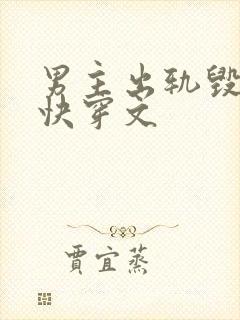 男主出轨毁
快穿文
賈宜蒸